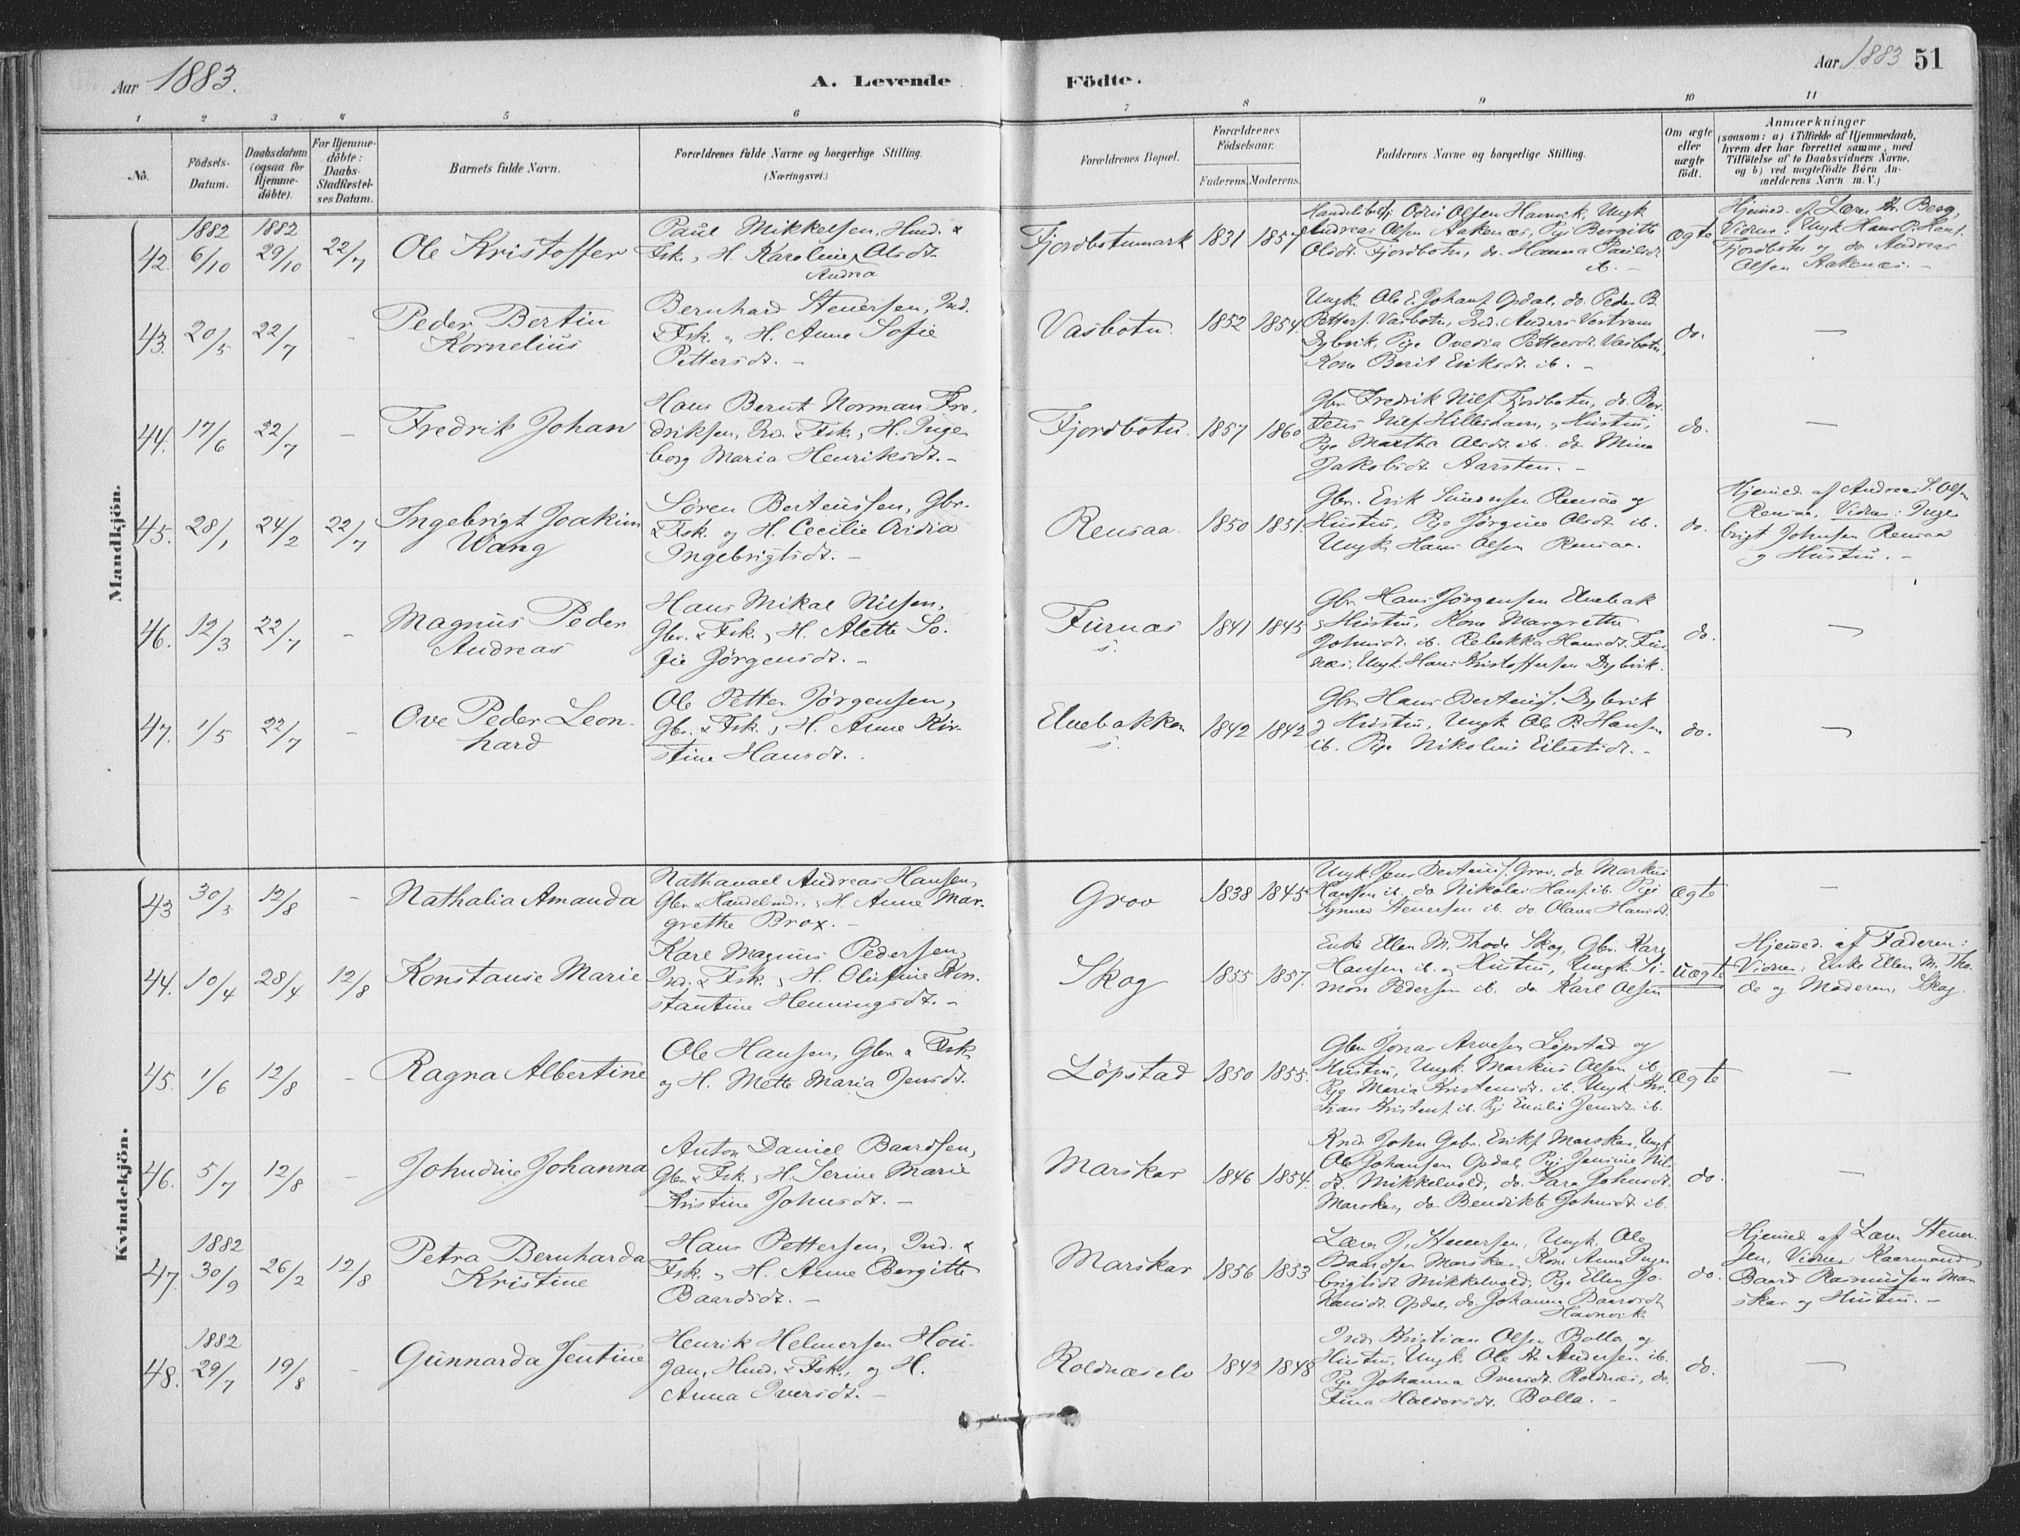 Aar 1883.
A. Levende
Födte.
Aar 1883 51
1 2 3 4 5 6 7 8 9 10 11
No.
Födsels-
Datum.
Daabsdatum
(ogsaa for
Hjemme-
döbte).
For Hjemme-
döbte:
Daabs-
Stadfæstel-
ses Datum.
Barnets fulde Navn.
Forældrenes fulde Navne og borgerlige Stilling.
(Næringsvei.)
Forældrenes Bopæl.
Forældrenes
Födselsaar.
Faderens. Moderens.
Faddernes Navne og borgerlige Stilling.
Om ægte
eller
uægte
födt.
Anmærkninger
(saasom: a) i Tilfælde af Hjemmedaab,
hvem der har forrettet samme, med
Tilföielse af to Daabsvidners Navne,
og b) ved uægtefödte Börn An-
melderens Navn m. V.)
Mandkjön.
42. 1882 6/10 1882 29/10 22/7
Ole Kristoffer
Paul Mikkelsen, Hmd. &
Fsk., H. Karoline Olsdt.
Andrea
Fjordbotnmark 1831 1857
Andreas Olsen Aakenæs, Pige Bergitte
Olsdt. Fjordbotn, do. Hanna Paulsdt.
ib. -
ægte
Hjemmed. af Lærer Berg,
Vidner: Ungk. Hans O. Hans.
Fjordbotn og do Andreas
Olsen Aakenæs. -
43. 20/5 22/7 -
Peder Bertin
Kornelius
Bernhard Stenersen, Ind.
& Fsk., H. Anne Sofie
Pettersdt. -
Vasbotn. 1852 1854.
Ungk. Ole E. Johans. Opdal, do. Peder B.
Petters. Vasbotn, Ind. Anders Vestrem
Dybvik, Pige Ovedia Pettersdt. Vasbotn,
Kone Berit Eriksdt. ib. -
do. -
44. 17/6 22/7 -
Fredrik Johan
Hans Bernt Norman Fre-
driksen, Ind. & Fsk., H. Inge-
borg Maria Henriksdt. -
Fjordbotn. 1857 1860
Gbr. Fredrik Nils. Fjordbotn, do. Ber-
teus Nils. Hillesdavn, Hustru,
Pige Martha Olsdt. ib. do. Mina
Jakobsdt. Aarsten. -
do. -
45. 28/1 24/2 22/7
Ingebrigt Joakim
Wang
Sören Berteussen, Gbr.
& Fsk. og H. Cecilie Ovidia
Ingebrigtsdt. -
Rensaa. 1850 1851.
Gbr. Erik Simonsen Rensaa og
Hustru, Pige Jørgine Olsdt. ib.
Ungk. Hans Olsen Rensaa.
do.
Hjemmed. af Andreas S. Olsen
Rensaa. Vidner: Inge-
brigt Johnsen Rensaa
og Hustru. -
46. 12/3 22/7 -
Magnus Peder
Andreas
Hans Mikal Nilsen,
Gbr. & Fsk., H. Alette So-
fie Jørgensdt. -
Furnæs 1841 1845
Gbr. Hans Jørgensen Elvebak
Hustru, Kone Margrethe
Johnsdt. ib. Rebekka Hansdt. Fur-
næs. Ungk. Hans Kristoffersen Dybvik.
do. -
47. 1/5 22/7 -
Ove Peder Leon-
hard
Ole Petter Jørgensen,
Gbr. & Fsk., H. Anne Kir-
stine Hansdt. -
Elvebakken 1842 1842
Gbr. Hans Berteus. Dybvik
& Hustru, Ungk. Ole P. Hansen
ib. Pige Nikoline Eilertsdt. -
do. -
Kvindekjön.
43 30/3 12/8 -
Nathalia Amanda
Nathanael Andreas Hansen,
Gbr. & Handelsmd., H. Anne Mar-
grethe Brox. -
Grov 1838 1845
Ungk. Jens Berteus. Grov, do Markus
Hansen ib. do Nikolai Hans. ib. Pige
Synnev Stenersen ib. do. Olava Hansdt.
Ægte -
44. 10/4 28/4 12/8
Konstanse Marie
Karl Magnus Pedersen,
Ind. & Fsk., H. Olufine Kon-
stantine Henningsdt. -
Skog 1855 1857.
Enke Ellen M. Thode Skog, Gbr. Karl
Hansen ib. og Hustru, Ungk. Si-
mon Pedersen ib. do Karl Olsen
uægte
Hjemmed. af Faderen:
Vidner: Enke Ellen M. Tho-
de og Moderen, Skog.
45. 1/6 12/8 -
Ragna Albertine
Ole Hansen, Gbr. & Fsk.
og H. Mette Maria Jensdt.
Löpstad 1850 1855.
Gbr. Jonas Arnesen Löpstad og
Hustru, Ungk. Markus Olsen ib.
Pige Maria Kristensdt. ib. Ungk. Kri-
stian Kristens. ib. Pige Emilie Jensdt. ib.
Ægte -
46. 5/7 12/8 -
Johndine Johanna
Anton Daniel Baardsen,
Gbr. & Fsk., H. Serine Marie
Kristine Johnsdt. -
Marskar 1846 1854.
John Gabr. Eriks. Marskar, Ungk.
Ole Johansen Opdal, Pige Jensine Nils-
dt. Mikkelvold, do. Sara Johnsdt.
Marskar, do Bendikte Johnsdt. ib.
do. -
47. 1882 30/9 26/2 12/8
Petra Bernharda
Kristine
Hans Pettersen, Ind. &
Fsk., H. Anne Bergitte
Baardsdt. -
Marskar 1856 1853
Lærer J. Stenersen, Ungk. Ole
Baardsen Marskar, Kone Anna Inge-
brigtsdt. Mikkelvold, Pige Ellen Jo-
hansdt. Opdal, do. Johanna Baardsdt.
Havnvik
do.
Hjemmed. af Lærer Stener-
sen, Vidner: Kaarmand
Baard Rasmussen Mar-
skar og Hustru. -
48. 1882 29/7 19/8 -
Gunnarda Jentine
Henrik Helmersen Hou-
gan, Hmd. & Fsk., og H.
Anna Iversdt. -
Roldnæselv 1842 1848
Ind. Kristian Olsen Bolla og
Hustru, Ungk. Ole A. Andersen ib.
Pige Johanna Iversdt. Roldnæs, do.
Fina Haldorsdt. Bolla. -
do. -